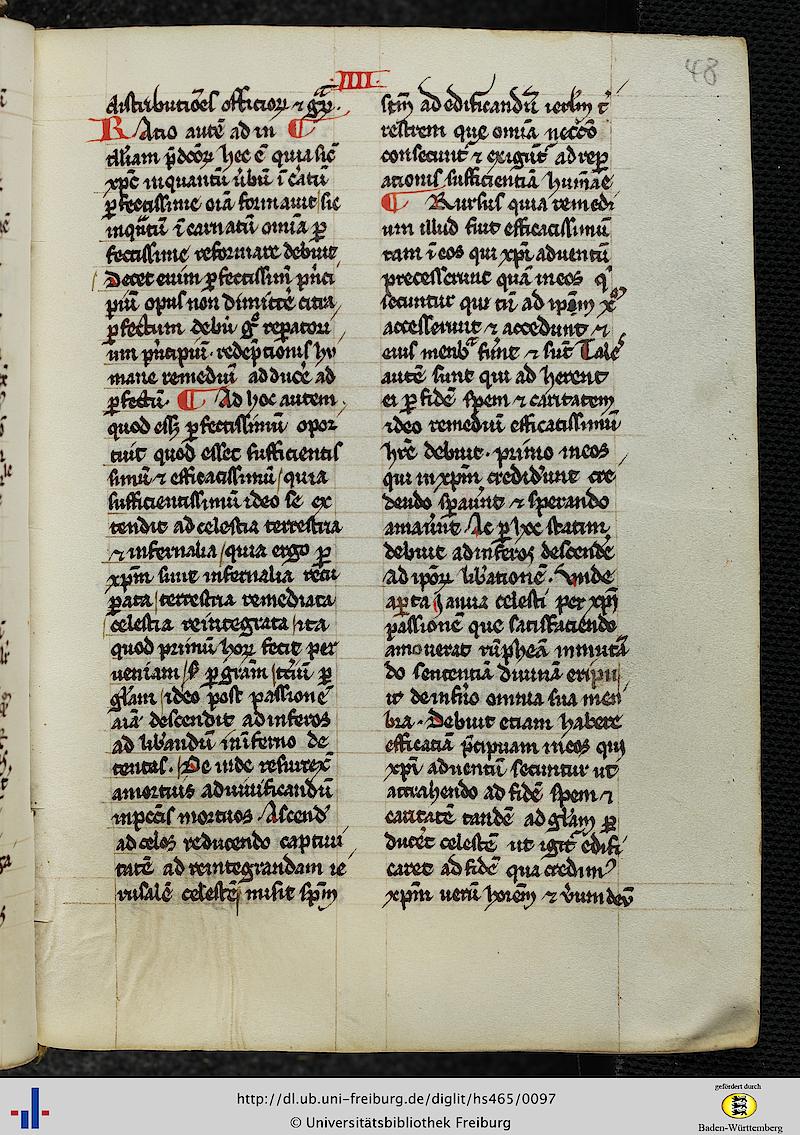 ·IIII·
48
distributões officioꝝ ⁊ gr̃aꝝ.
RAtio autē ad in ¶
tll'iam p̄dcōꝝ hec ē quia sic̄
xpc̄ inquantū ūbū īcatū
ꝑfectissime oīa formauit / sic
inq̃tū īcarnatū omīa ꝑ
fectissime reformare debuit
Decet enim ꝑfectissimū pnci
piū opus non dimittē citra
ꝑfectum debū gº reparatori
um pncipiū · redēptionis hu
mane remediū adducē ad
ꝑfectū. ¶ Ad hoc autem
quod ess; ꝑfectissimū opor
tuit quod esset sufficientis
simū ⁊ efficacissimū / quia
sufficientissimū ideo se ex
tendit ad celestia terrestria
⁊ infernalia / quia ergo ꝑ
xpm̄ sunt infernalia recu
ꝑata / terrestria remediata
celestia reintegrata / ita
quod primū hoꝝ fecit per
ueniam / s; ꝑ grām / tciū ꝑ
gl'iam / ideo post passionē
aīa descendit ad inferos
ad lib'andū in inferno de
tentos. / De inde resurrex̄
a mortuis ad uiuificandū
in pccīs mortuos. Ascend'
ad celos reducendo captiui
tatē ad reintegrandam ie
rusalē celestē / misit spm̄
scm̄ ad edificandū ierl'm t'
restrem que omīa neccō
consecunt' ⁊ exigunt' ad reꝑ
ationis sufficientiā humāe
¶ Rursus quia remedi
um illud fuit efficacissimū
tam ī eos qui xpi aduentū
precesserunt quā in eos q̄
secuntur qui cū ad ip̄m xº
accesserunt ⁊ accedunt ⁊
eius menbª fūnt ⁊ sūt Tales
autē sunt qui ad herent
ei ꝑ fidē spem ⁊ caritatem
ideo remediū efficatissimū
hr̄e debuit · primo in eos
qui in xpm̄ credid'unt cre
dendo spaūnt ⁊ sperando
amaūnt Ac ꝑ hoc statim
debuit ad inferos descendē
ad ipoꝝ lib'ationē. Vnde
aꝑta ianua celesti per xpi
passionē que satisfaciendo
amouerat rūpheā mmutā
do sententiā diuinā eripu
it de inf'no omnia sua men
bra. Debuit etiam habere
efficatiā p̄cipuam in eos qui
xpi aduentū secuntur ut
attrahendo ad fidē spem ⁊
caritatē tandē ad gl'am ꝑ
duceret celestē ut igit' edifi
caret ad fidē qua credimꝰ
xpm̄ uerū hoiēm ⁊ ūum deū
http://dl.ub.uni-freiburg.de/diglit/hs465/0097
© Universitätsbibliothek Freiburg
gefördert durch
Baden-Württemberg